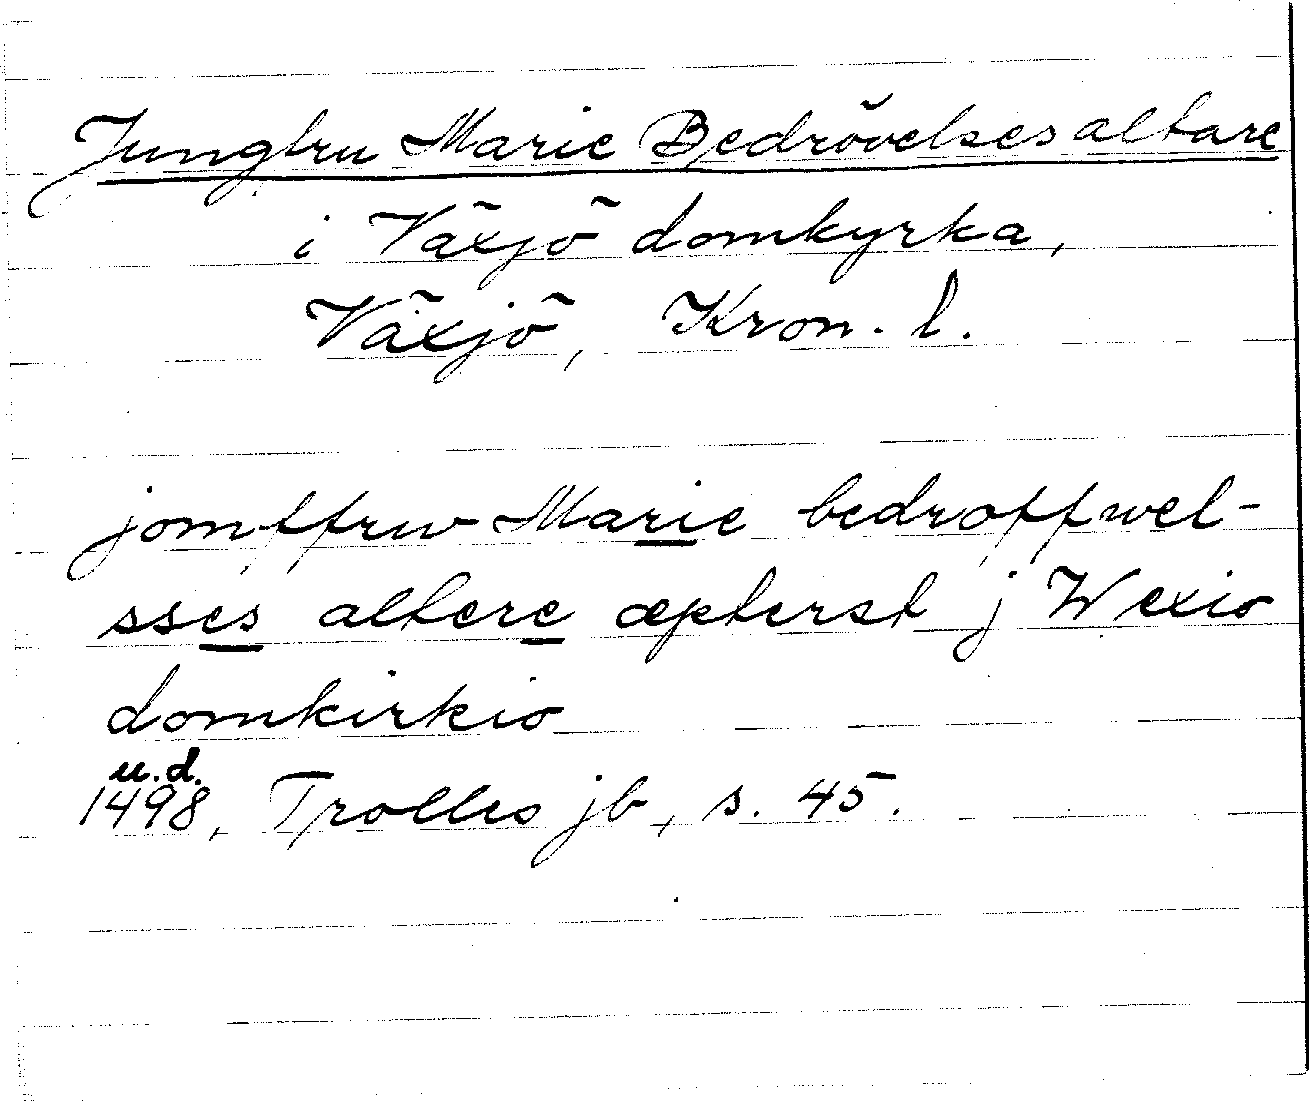 Jungfru Marie Bedrövelses altare
i Växjö domkyrka,
Växjö, Kron. l.
jomffrw Marie bedroffwel-
sses altere æpterst j Wexio
domkirkio
u.d.
1498, Trolles jb, s. 45.